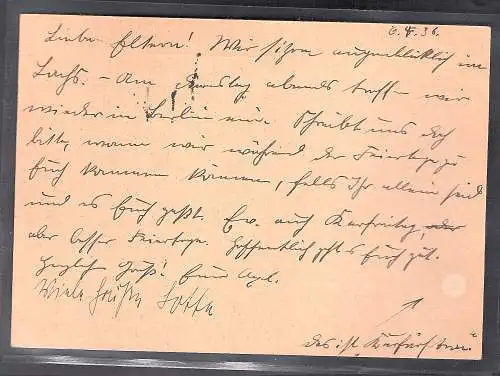 6.4.36.
Liebe Eltern! Wir sitzen augenblicklich im
. – Am abends treffen wir
wieder in Berlin ein. Schreibt uns doch
bitte, wann wir während der Feiertage zu
Euch kommen können, falls Ihr allein seid
und es Euch paßt. Ev. auch Karfreitag, oder
aber besser Feiertage. Hoffentlich geht es Euch gut.
Herzliche Grüße! Eure
Viele Grüße Lotte
das ist